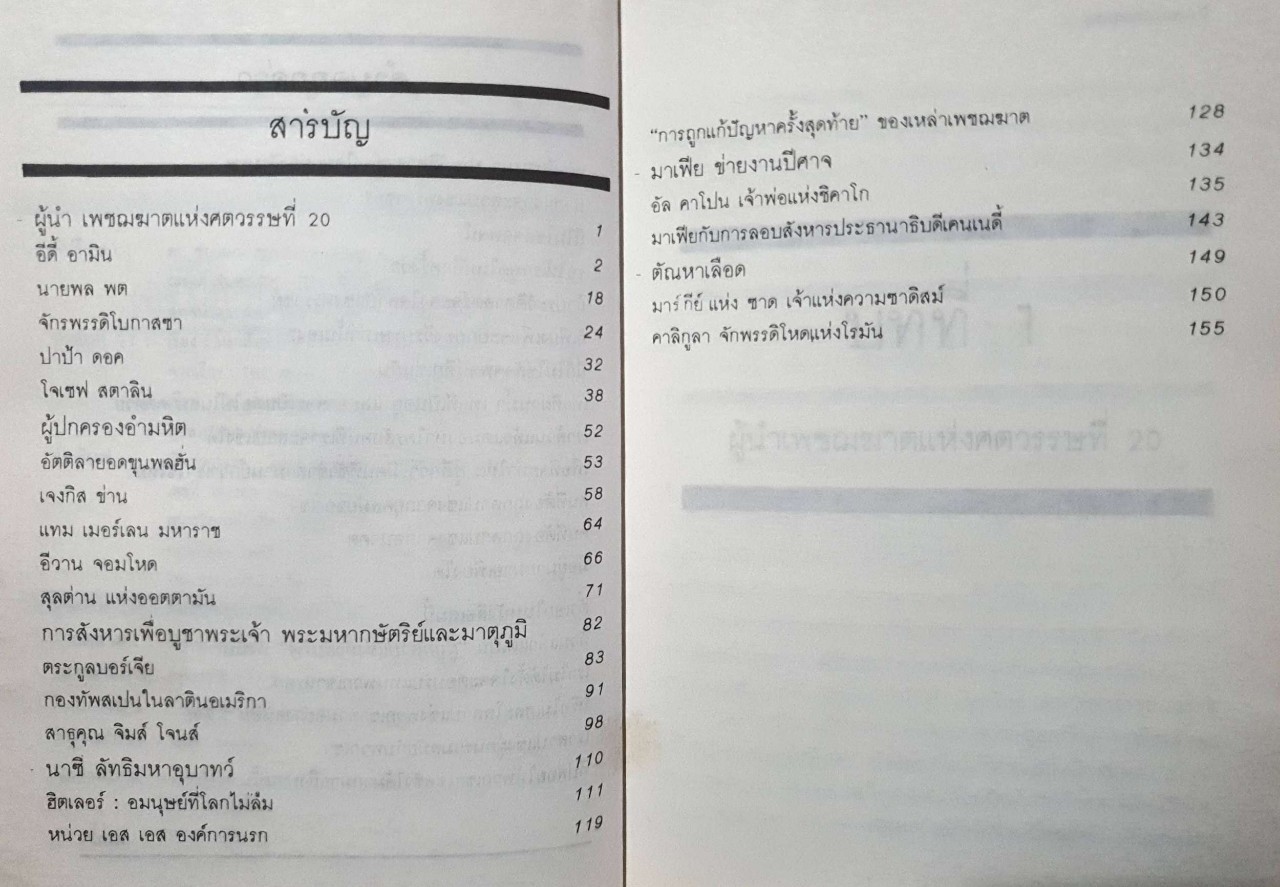 สารบัญ
- ผู้นำ เพชฌฆาตแห่งศตวรรษที่ 20 1
อีดี้ อามิน 2
นายพล พต 18
จักรพรรดิโบกาสซา 24
ปาป้า ดอค 32
โจเซฟ สตาลิน 38
ผู้ปกครองอำมหิต 52
อัตติลายอดขุนพลฮั่น 53
เจงกิส ข่าน 58
แทม เมอร์เลน มหาราช 64
อีวาน จอมโหด 66
สุลต่าน แห่งออตตามัน 71
การสังหารเพื่อบูชาพระเจ้า พระมหากษัตริย์และมาตุภูมิ 82
ตระกูลบอร์เจีย 83
กองทัพสเปนในลาตินอเมริกา 91
สาธุคุณ จิมส์ โจนส์ 98
- นาซี ลัทธิมหาอุบาทว์ 110
ฮิตเลอร์ : อมนุษย์ที่โลกไม่ลืม 111
หน่วย เอส เอส องค์การนรก 119
"การถูกแก้ปัญหาครั้งสุดท้าย" ของเหล่าเพชฌฆาต 128
- มาเฟีย ข่ายงานปีศาจ 134
อัล คาโปน เจ้าพ่อแห่งชิคาโก 135
มาเฟียกับการลอบสังหารประธานาธิบดีเคนเนดี้ 143
- ตัณหาเลือด 149
มาร์กีย์ แห่ง ซาด เจ้าแห่งความซาดิสม์ 150
คาลิกูลา จักพรรดิโหดแห่งโรมัน 155
ผู้นำเพชฌฆาตแห่งศตวรรษที่ 20